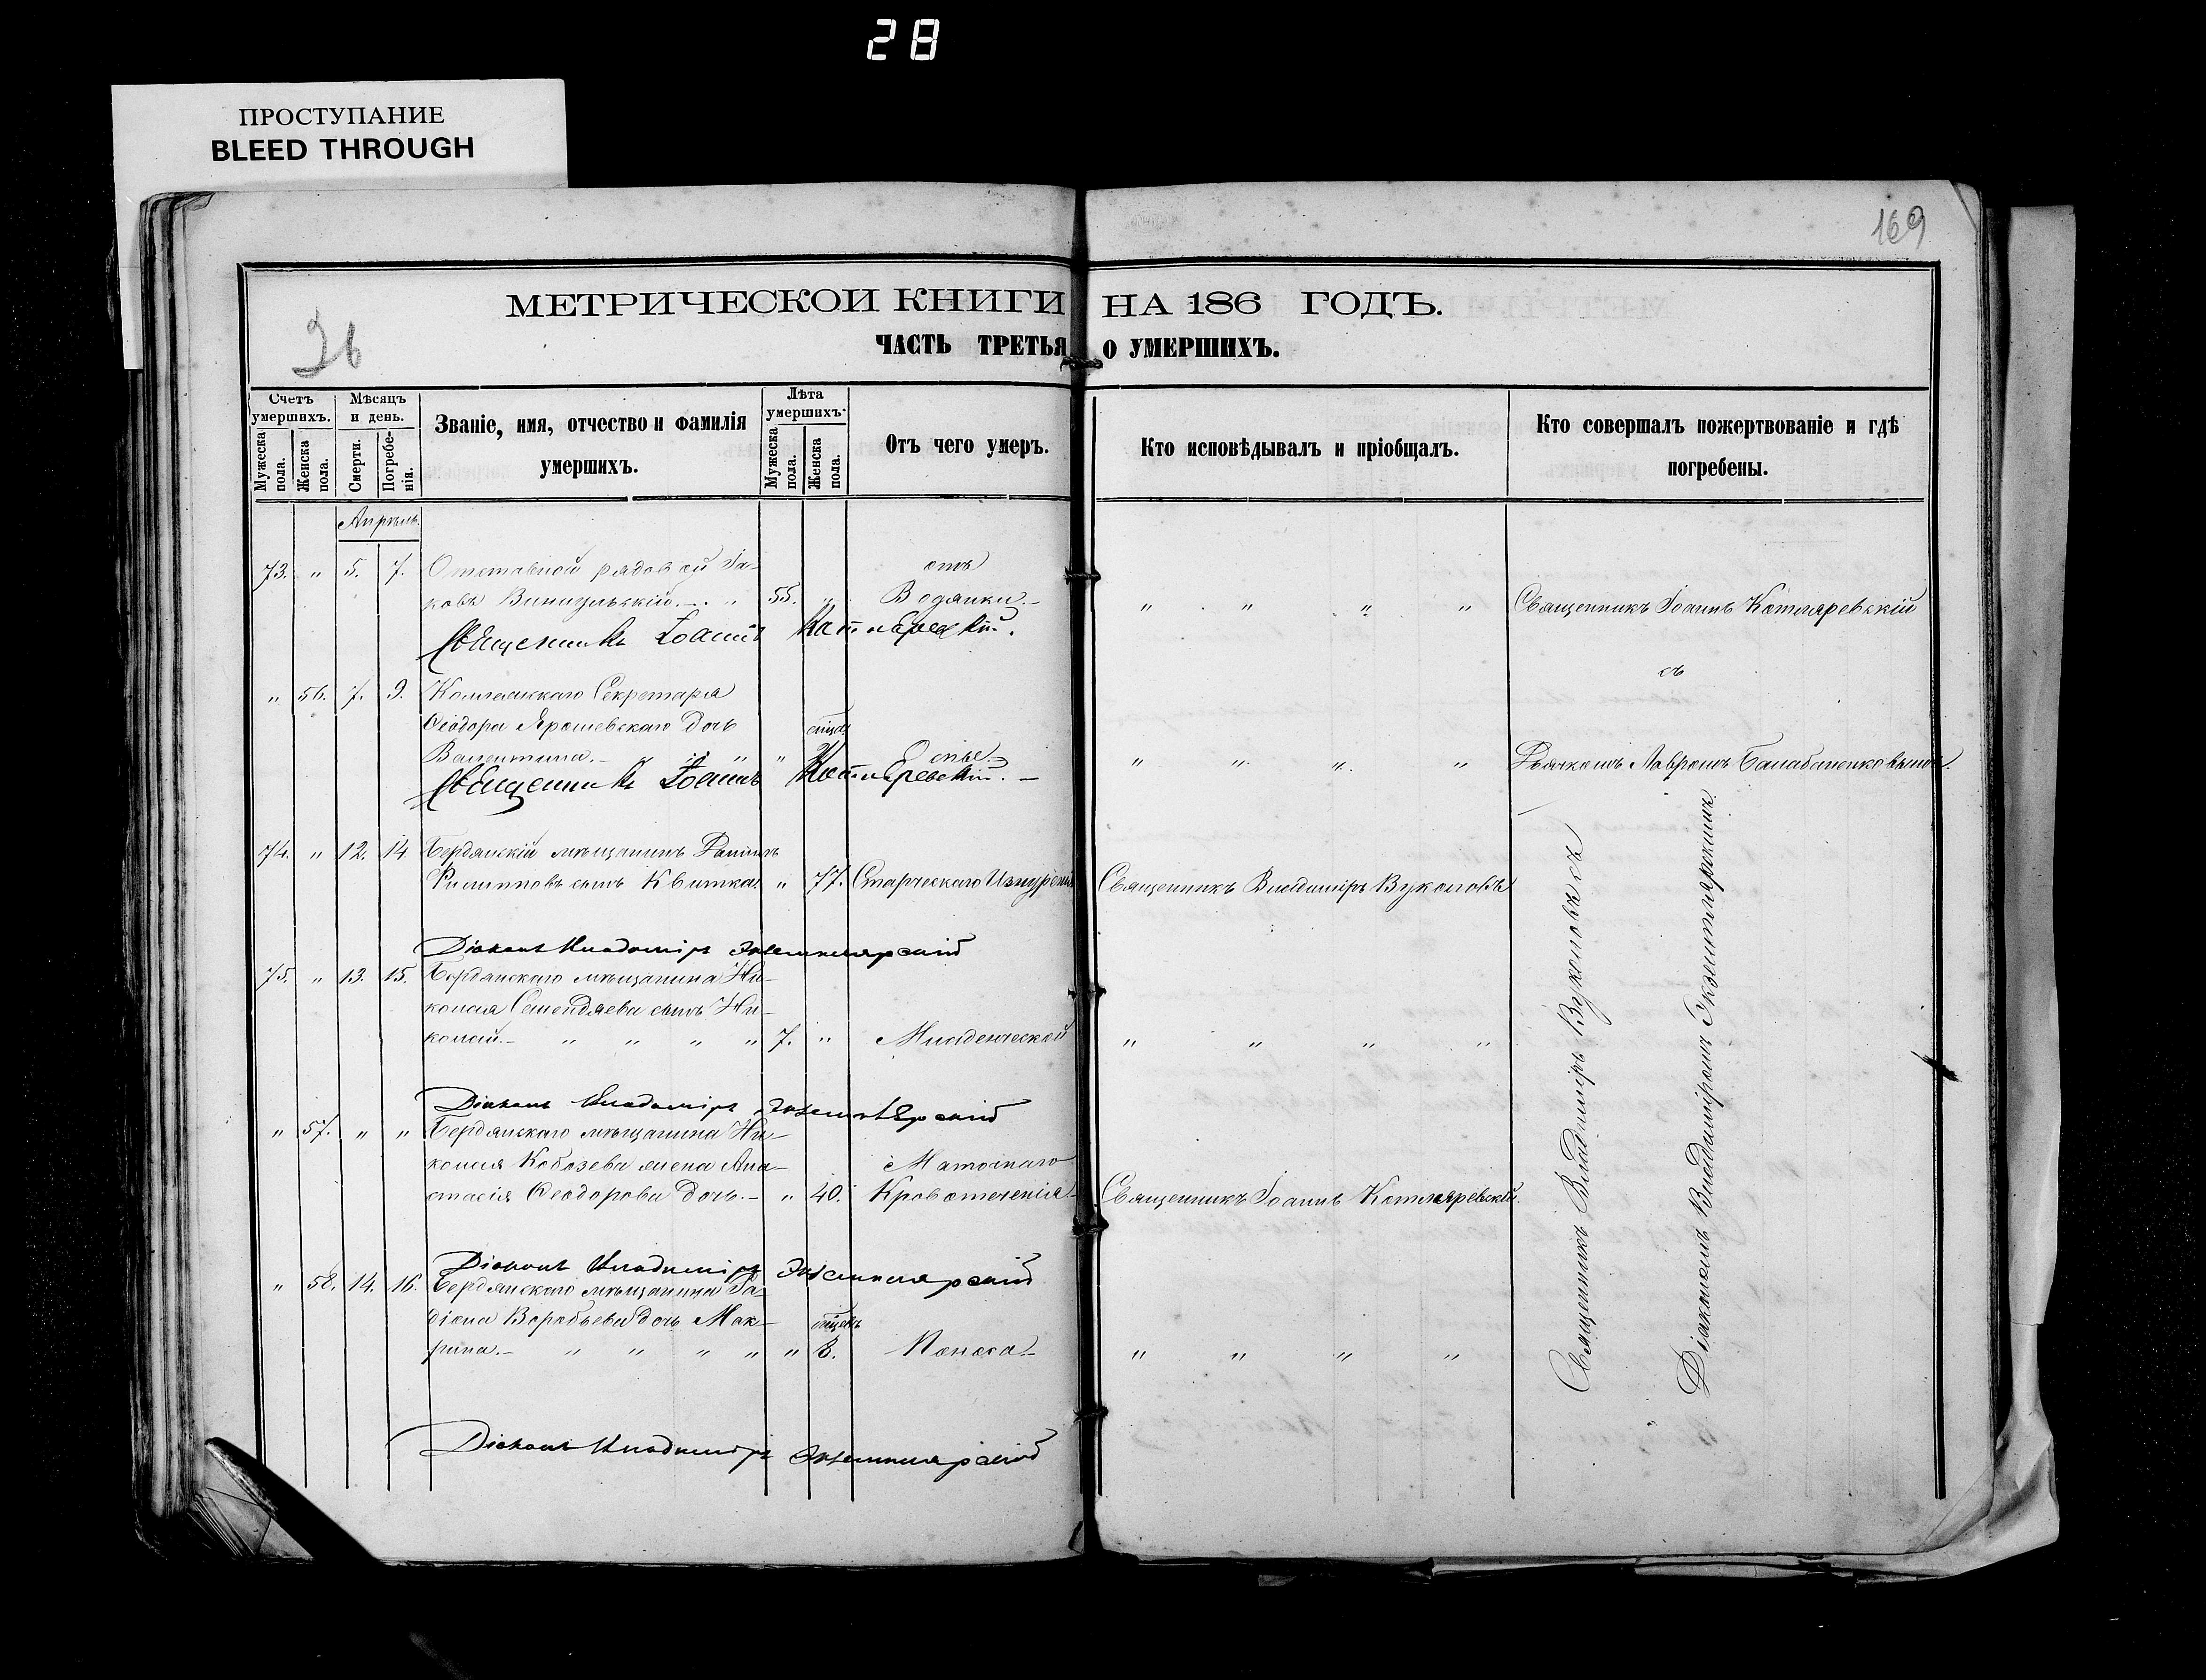 28
ПРОСТУПАНИЕ
BLEED THROUGH
169
МЕТРИЧЕСКОЙ КНИГИ НА 186 ГОДЪ.
36
ЧАСТЬ ТРЕТЬЯ О УМЕРШИХЪ.
Счетъ умершихъ.
Мужеска пола.
Женска пола.
Мѣсяцъ и день.
Смерти.
Погребенія.
Званіе, имя, отчество и фамилія умершихъ.
Лѣта умершихъ.
Мужеска пола.
Женска пола.
Отъ чего умеръ.
Кто исповѣдывалъ и пріобщалъ.
Кто совершалъ пожертвованіе и гдѣ погребены.
Апрѣль.
73. " 5. 7. Отставной рядовой Іа- отъ
ковъ 55. " Водянки.- " " " " Священникъ Іоаннъ Котляревскій
Священникъ Іоаннъ Котляревскій.
съ
" 56. 7. 9. Коллежскаго Секретаря
Ѳеодора Ярошевскаго дочь
Валентина.- " " " Оспы.- " " " " Дьячкомъ Лавромъ Балабаненковымъ.
Священникъ Іоаннъ Котляревскій.-
74. " 12. 14. Бердянскій мѣщанинъ
Филипповъ сынъ Квитка " 77. Старческаго Изнуренія Священникъ Владиміръ Вуколовъ
Діаконъ Владиміръ Экземплярскій
75. " 13. 15. Бердянскаго мѣщанина Ни-
колая сынъ Ни-
колай.- " " " " 7. " Младенческой " " " "
Діаконъ Владиміръ Экземплярскій
" 57. " " Бердянскаго мѣщанина Ни-
колая Кобозева жена Ана- Маточнаго
стасія Ѳеодорова дочь.- " 40. Кровотеченія Священникъ Іоаннъ Котляревскій.
Діаконъ Владиміръ Экземплярскій
" 58. 14. 16. Бердянскаго мѣщанина
Воробьева дочь Мак-
рина.- " " " " " 8. Поноса.- " " " "
Діаконъ Владиміръ Экземплярскій
Священникъ Владиміръ Вуколовъ съ
Діакономъ Владиміромъ Экземплярскимъ